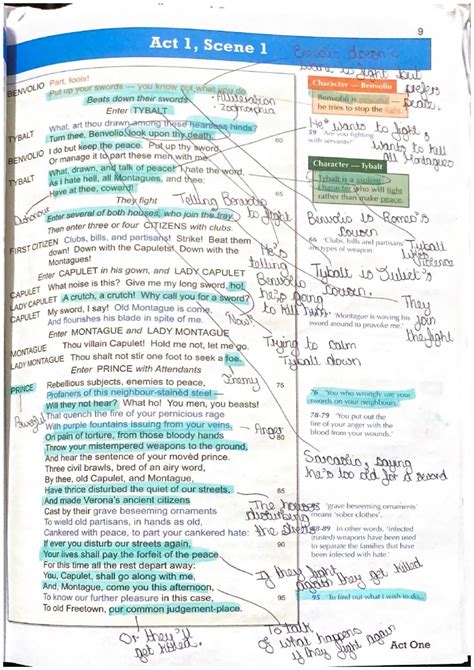 9
Act 1, Scene 1
BENVOLIO Part, fools!
Put up your swords — you know not what you do.
Beats down their swords
Enter TYBALT
TYBALT What, art thou drawn among these heartless hinds?
Turn thee, Benvolio, look upon thy death.
BENVOLIO I do but keep the peace. Put up thy sword,
Or manage it to part these men with me.
60
TYBALT What, drawn, and talk of peace? I hate the word,
As I hate hell, all Montagues, and thee.
Have at thee, coward!
They fight
Enter several of both houses, who join the fray.
Then enter three or four CITIZENS with clubs.
65
FIRST CITIZEN Clubs, bills, and partisans! Strike! Beat them
down! Down with the Capulets! Down with the
Montagues!
Enter CAPULET in his gown, and LADY CAPULET
CAPULET What noise is this? Give me my long sword, ho!
LADY CAPULET A crutch, a crutch! Why call you for a sword?
CAPULET My sword, I say! Old Montague is come,
And flourishes his blade in spite of me.
Enter MONTAGUE and LADY MONTAGUE
MONTAGUE Thou villain Capulet! Hold me not, let me go.
LADY MONTAGUE Thou shalt not stir one foot to seek a foe.
Enter PRINCE with Attendants
PRINCE Rebellious subjects, enemies to peace,
75
Profaners of this neighbour-stained steel —
Will they not hear? What ho! You men, you beasts!
That quench the fire of your pernicious rage
With purple fountains issuing from your veins,
On pain of torture, from those bloody hands
80
Throw your mistempered weapons to the ground,
And hear the sentence of your movèd prince.
Three civil brawls, bred of an airy word,
By thee, old Capulet, and Montague,
Have thrice disturbed the quiet of our streets,
85
And made Verona's ancient citizens
Cast by their grave beseeming ornaments
To wield old partisans, in hands as old,
Cankered with peace, to part your cankered hate:
If ever you disturb our streets again,
90
Your lives shall pay the forfeit of the peace.
For this time all the rest depart away:
You, Capulet, shall go along with me,
And, Montague, come you this afternoon,
To know our further pleasure in this case,
95
To old Freetown, our common judgement-place.
Benvolio doesn't
want to fight but
prefers
peace.
Character — Benvolio
Benvolio is peaceful —
he tries to stop the fight.
He wants to fight,
wants to kill
all Montagues
59 'Are you fighting
with servants?'
Character — Tybalt
Tybalt is a violent
character who will fight
rather than make peace.
Benvolio is Romeo's
cousin
66 'Clubs, bills and partisans'
are types of weapon.
Tybalt
likes
violence
Tybalt is Juliet's
cousin.
They
join
the fight
'Montague is waving his
sword around to provoke me.'
Alliteration
Zoomorphia
Telling Benvolio
to fight
He's
telling
Benvolio
he's going
to kill him
Now!
Trying to calm
Tybalt down
Irony
Powerful
Anger
76 'You who wrongly use your
swords on your neighbours.'
78-79 'You put out the
fire of your anger with the
blood from your wounds.'
Sarcastic, saying
he's too old for a sword
The houses
disturbing
the streets
'grave beseeming ornaments'
means 'sober clothes'.
88-89 In other words, 'infected
(rusted) weapons have been used
to separate the families that have
been infected with hatred.'
If they fight
again they get killed
95 'To find out what I wish to do...'
Or they'll
get killed.
To talk
of what happens
if they fight again
Act One